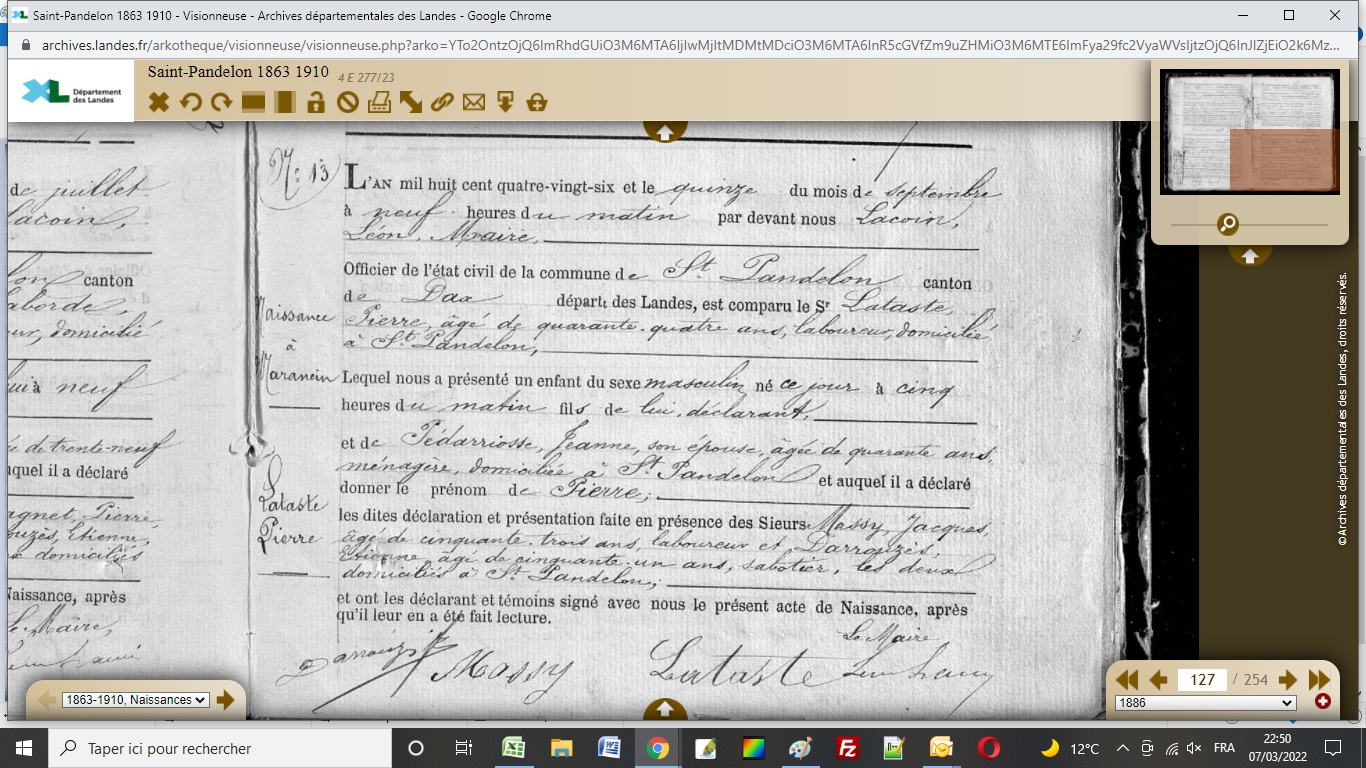 Saint-Pandelon 1863 1910 - Visionneuse - Archives départementales des Landes - Google Chrome
archives.landes.fr/arkotheque/visionneuse/visionneuse.php?arko=
Saint-Pandelon 1863 1910 4 E 277/23
XL Département
des Landes
de juillet
Lacoin,
canton
aborde,
domicilié
neuf
ée de trente-neuf
auquel il a déclaré
Pierre,
Etienne,
domiciliés
Naissance, après
Le Maire,
N° 13
L'AN mil huit cent quatre-vingt-six et le quinze du mois de septembre
à neuf heures du matin par devant nous Lacoin,
Léon, Maire,
Officier de l'état civil de la commune de St Pandelon canton
de Dax départt des Landes, est comparu le Sr Lataste,
Pierre, âgé de quarante-quatre ans, laboureur, domicilié
à St Pandelon,
Naissance
à
Narancin
Lequel nous a présenté un enfant du sexe masculin né ce jour à cinq
heures du matin fils de lui, déclarant,
et de Pédarriosse, Jeanne, son épouse, âgée de quarante ans,
ménagère, domiciliée à St Pandelon et auquel il a déclaré
donner le prénom de Pierre;
Lataste
Pierre
les dites déclaration et présentation faite en présence des Sieurs Massy, Jacques,
âgé de cinquante-trois ans, laboureur et Darrouzès,
Etienne, âgé de cinquante-un ans, sabotier, les deux
domiciliés à St Pandelon;
et ont les déclarant et témoins signé avec nous le présent acte de Naissance, après
qu'il leur en a été fait lecture.
Le Maire,
Massy Lataste
©Archives départementales des Landes, droits réservés.
1863-1910, Naissances
127 / 254
1886
Taper ici pour rechercher
12°C
FRA
22:50
07/03/2022